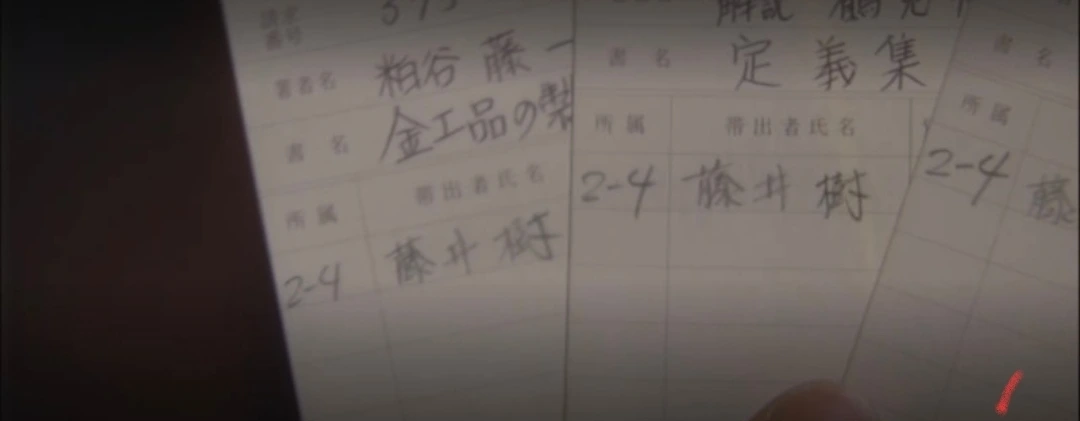 請求
番号
著者名 粕谷 藤一
書名 金工品の製
所属 帯出者氏名
2-4 藤井樹
解説
書名 定義集
所属 帯出者氏名
2-4 藤井樹
書名
所属
2-4 藤